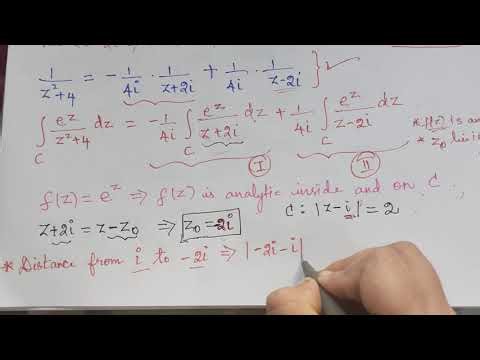 1/(z²+4) = -1/4i · 1/(z+2i) + 1/4i · 1/(z-2i) } ✓
∫_C e^z/(z²+4) dz = -1/4i ∫_C e^z/(z+2i) dz + 1/4i ∫_C e^z/(z-2i) dz
* f(z) is
* z₀
I II
f(z) = e^z ⇒ f(z) is analytic inside and on C.
z+2i = z-z₀ ⇒ z₀ = -2i C : |z-i| = 2
* Distance from i to -2i ⇒ |-2i-i|